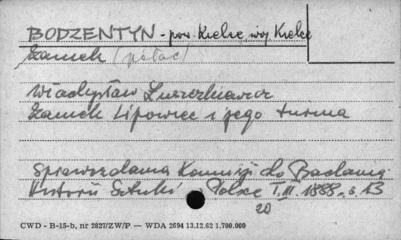 BODZENTYN - pow. Kielce woj Kielce
Zamek (pałac)
Władysław Łuszczkiewicz
Zamek Lipowiec i jego turma
Sprawozdania Komisji do Badania
Historii Sztuki w Polsce T. III. 1888, s. 13
20
CWD - B-15-b, nr 2827/ZW/P — WDA 2694 13.12.62 1.700.000